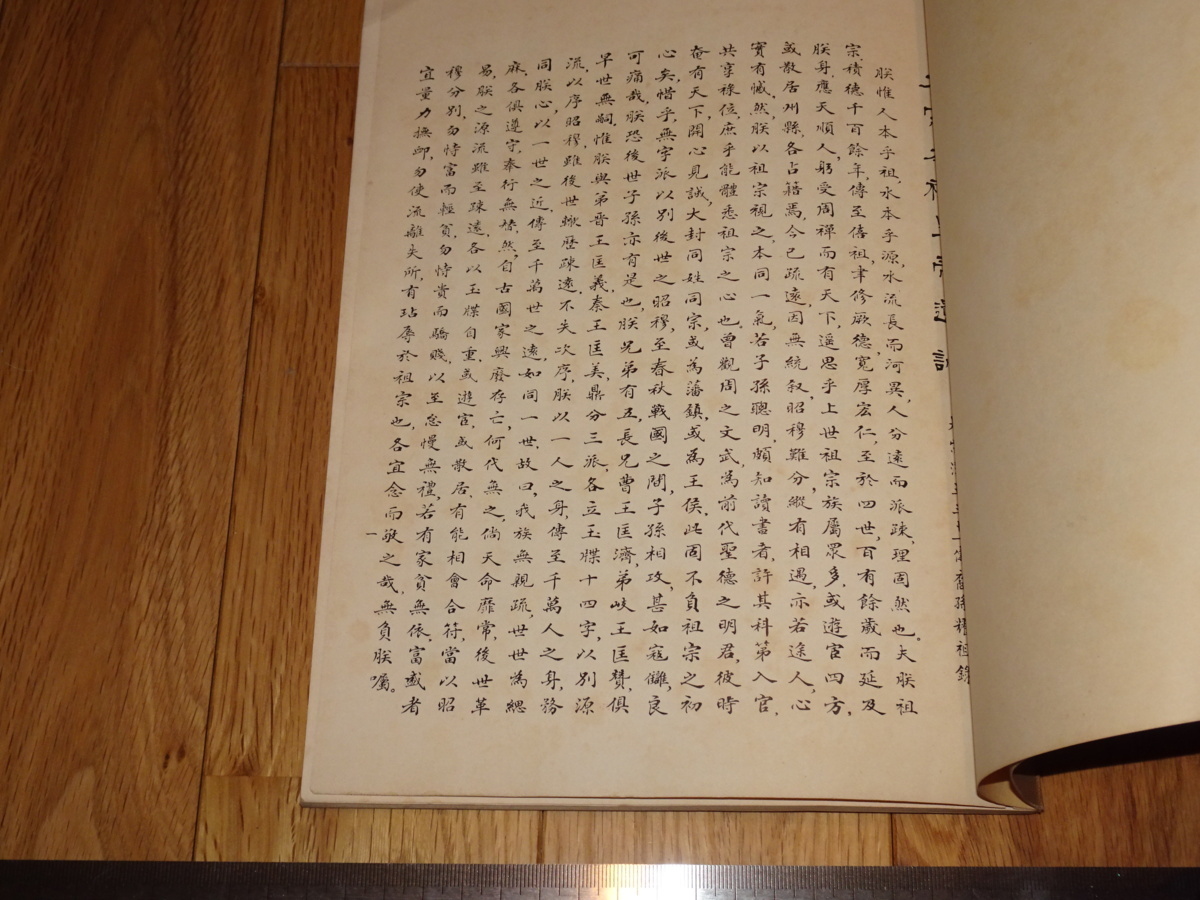 太宗皇帝遺訓
裔孫楷祖錄
朕惟人本乎祖,水本乎源,水流長而河異,人分遠而派疎,理固然也。夫朕祖
宗,積德千百餘年,傳至僖祖,聿修厥德,寬厚宏仁,至於四世,百有餘歲而延及
朕身,應天順人,躬受周禪而有天下,遥思乎上世祖宗族屬眾多,或遊宦四方,
或散居州縣,各占籍焉,今已疏遠,因無統叙,昭穆難分,縱有相遇,亦若途人,心
實有慽,然朕以祖宗視之,本同一氣,若子孫聰明,頗知讀書者,許其科第入官,
共享祿位,庶乎能體悉祖宗之心也,曾觀周之文武,為前代聖德之明君,彼時
奄有天下,開心見誠,大封同姓同宗,或為藩鎮,或為王侯,此固不負祖宗之初
心矣,惜乎,無字派以别後世之昭穆,至春秋戰國之間,子孫相攻,甚如寇讎,良
可痛哉,朕恐後世子孫亦有是也,朕兄弟有五,長兄曹王匡濟,弟岐王匡贊,俱
早世無嗣,惟朕與弟晋王匡義,秦王匡美,鼎分三派,各立玉牒十四字,以别源
流,以序昭穆,雖後世緜歷疎遠,不失次序,朕以一人之身,傳至千萬人之身,務
同朕心,以一世之近,傳至千萬世之遠,如同一世,故曰,我族無親疏,世世為緦
麻,各俱遵守,奉行無替,然自古國家興廢存亡,何代無之,倘天命靡常,後世革
易,朕之源流雖至疎遠,各以玉牒自重,或遊宦,或散居,有能相會合符,當以昭
穆分别,勿恃富而輕貧,勿恃貴而驕賤,以至怠慢無禮,若有家貧無依,富或者
宜量力撫卹,勿使流離失所,有玷辱於祖宗也,各宜念而敬之哉,無負朕囑。
一